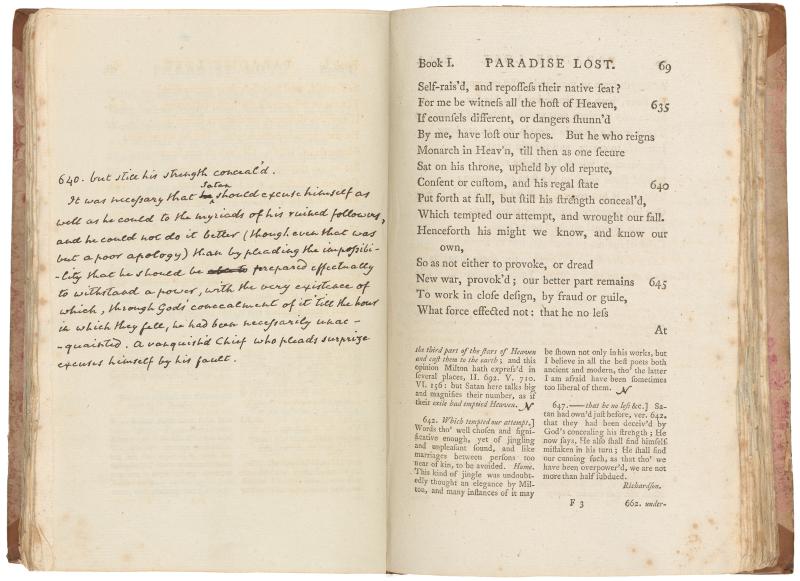 640. but still his strength conceal'd.
It was necessary that he Satan should excuse himself as
well as he could to the myriads of his ruined followers,
and he could not do it better (though even that was
but a poor apology) than by pleading the impossibi-
-lity that he should be prepared effectually
to withstand a power, with the very existence of
which, through Gods' concealment of it till the hour
in which they fell, he had been necessarily unac-
-quainted. A vanquish'd Chief who pleads surprize
excuses himself by his fault.
Book I. PARADISE LOST. 69
Self-rais'd, and repoſſeſs their native ſeat?
For me be witneſs all the hoſt of Heaven, 635
If counſels different, or dangers ſhunn'd
By me, have loſt our hopes. But he who reigns
Monarch in Heav'n, till then as one ſecure
Sat on his throne, upheld by old repute,
Conſent or cuſtom, and his regal ſtate 640
Put forth at full, but ſtill his ſtrength conceal'd,
Which tempted our attempt, and wrought our fall.
Henceforth his might we know, and know our
own,
So as not either to provoke, or dread
New war, provok'd; our better part remains 645
To work in cloſe deſign, by fraud or guile,
What force effected not: that he no leſs
At
the third part of the ſtars of Heaven
and caſt them to the earth; and this
opinion Milton hath expreſs'd in
ſeveral places, II. 692. V. 710.
VI. 156: but Satan here talks big
and magnifies their number, as if
their exile had emptied Heaven. N
642. Which tempted our attempt,]
Words tho' well choſen and ſigni-
ficative enough, yet of jingling
and unpleaſant ſound, and like
marriages between perſons too
near of kin, to be avoided. Hume.
This kind of jingle was undoubt-
edly thought an elegance by Mil-
ton, and many inſtances of it may
be ſhown not only in his works, but
I believe in all the beſt poets both
ancient and modern, tho' the latter
I am afraid have been ſometimes
too liberal of them. N
647.——that he no leſs &c.] Sa-
tan had own'd juſt before, ver. 642.
that they had been deceiv'd by
God's concealing his ſtrength; He
now ſays, He alſo ſhall find himſelf
miſtaken in his turn; He ſhall find
our cunning ſuch, as that tho' we
have been overpower'd, we are not
more than half ſubdued.
Richardſon.
F 3 662. under-